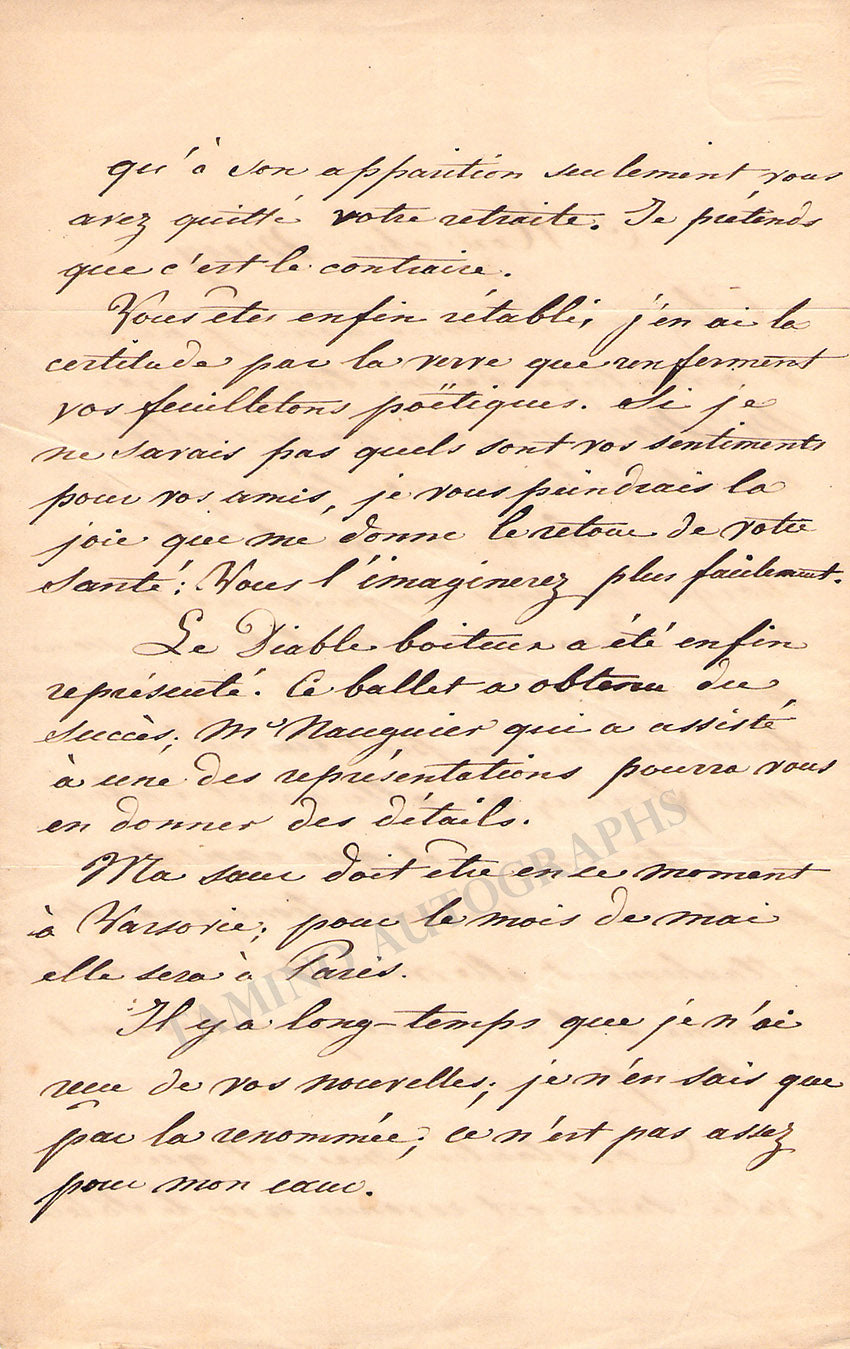 qu'à son apparition seulement vous
avez quitté votre retraite. Je prétends
que c'est le contraire.
Vous êtes enfin rétabli, j'en ai la
certitude par la verve que renferment
vos feuilletons poëtiques. Si je
ne savais pas quels sont vos sentiments
pour vos amis, je vous peindrais la
joie que me donne le retour de votre
santé: Vous l'imaginerez plus facilement.
Le Diable boiteux a été enfin
représenté. Ce ballet a obtenu du
succès; Mr Nauguier qui a assisté
à une des représentations pourra vous
en donner des détails.
Ma sœur doit être en ce moment
à Varsovie; pour le mois de mai
elle sera à Paris.
Il y a long-temps que je n'ai
reçu de vos nouvelles; je n'en sais que
par la renommée; ce n'est pas assez
pour mon cœur.
TAMINO AUTOGRAPHS